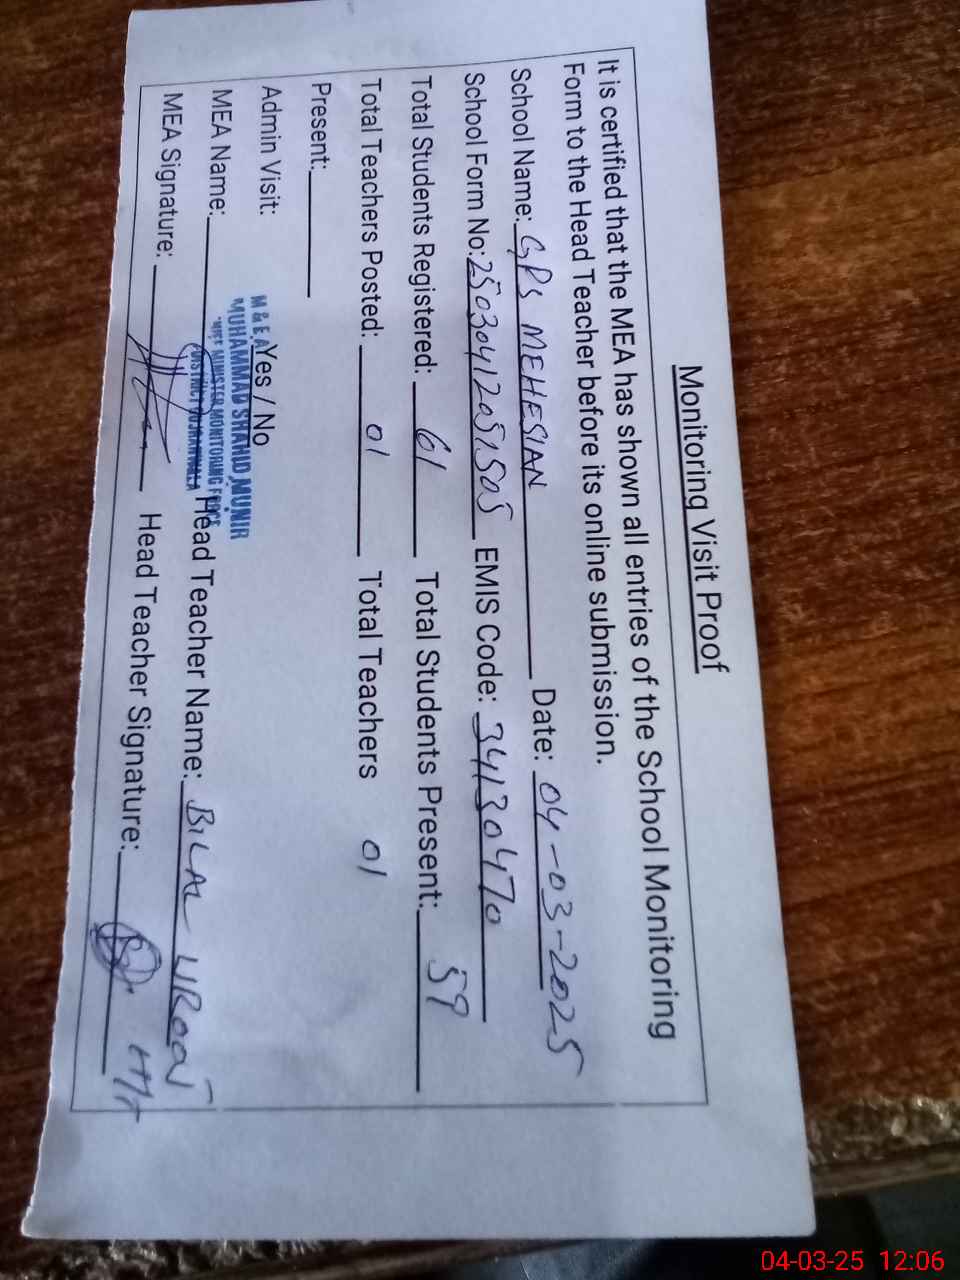 Monitoring Visit Proof
It is certified that the MEA has shown all entries of the School Monitoring
Form to the Head Teacher before its online submission.
School Name: GPS MEHESIAN Date: 04-03-2025
School Form No: 25030412051505 EMIS Code: 34130470
Total Students Registered: 61 Total Students Present: 59
Total Teachers Posted: 01 Total Teachers 01
Present:
Admin Visit: Yes / No
M & E A
MUHAMMAD SHAHID MUNIR
CHIEF MINISTER MONITORING FORCE
DISTRICT GUJRANWALA
MEA Name: Head Teacher Name: BILAL
MEA Signature: Head Teacher Signature:
04-03-25 12:06